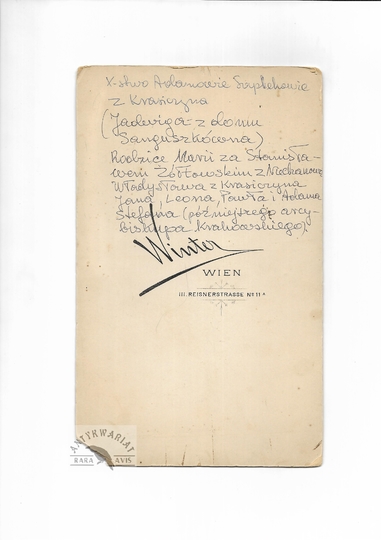 X-stwo Adamowie Sapiehowie
z Krasiczyna
(Jadwiga - z domu
Sanguszkówna)
Rodzice Marii za Stanisła-
wem Żółtowskim z Niechanowa
Władysława z Krasiczyna
Jana, Leona, Pawła i Adama
Stefana (późniejszego arcy-
biskupa Krakowskiego).
Winter
WIEN
III. REISNERSTRASSE No 11A
ANTYKWARIAT
RARA AVIS